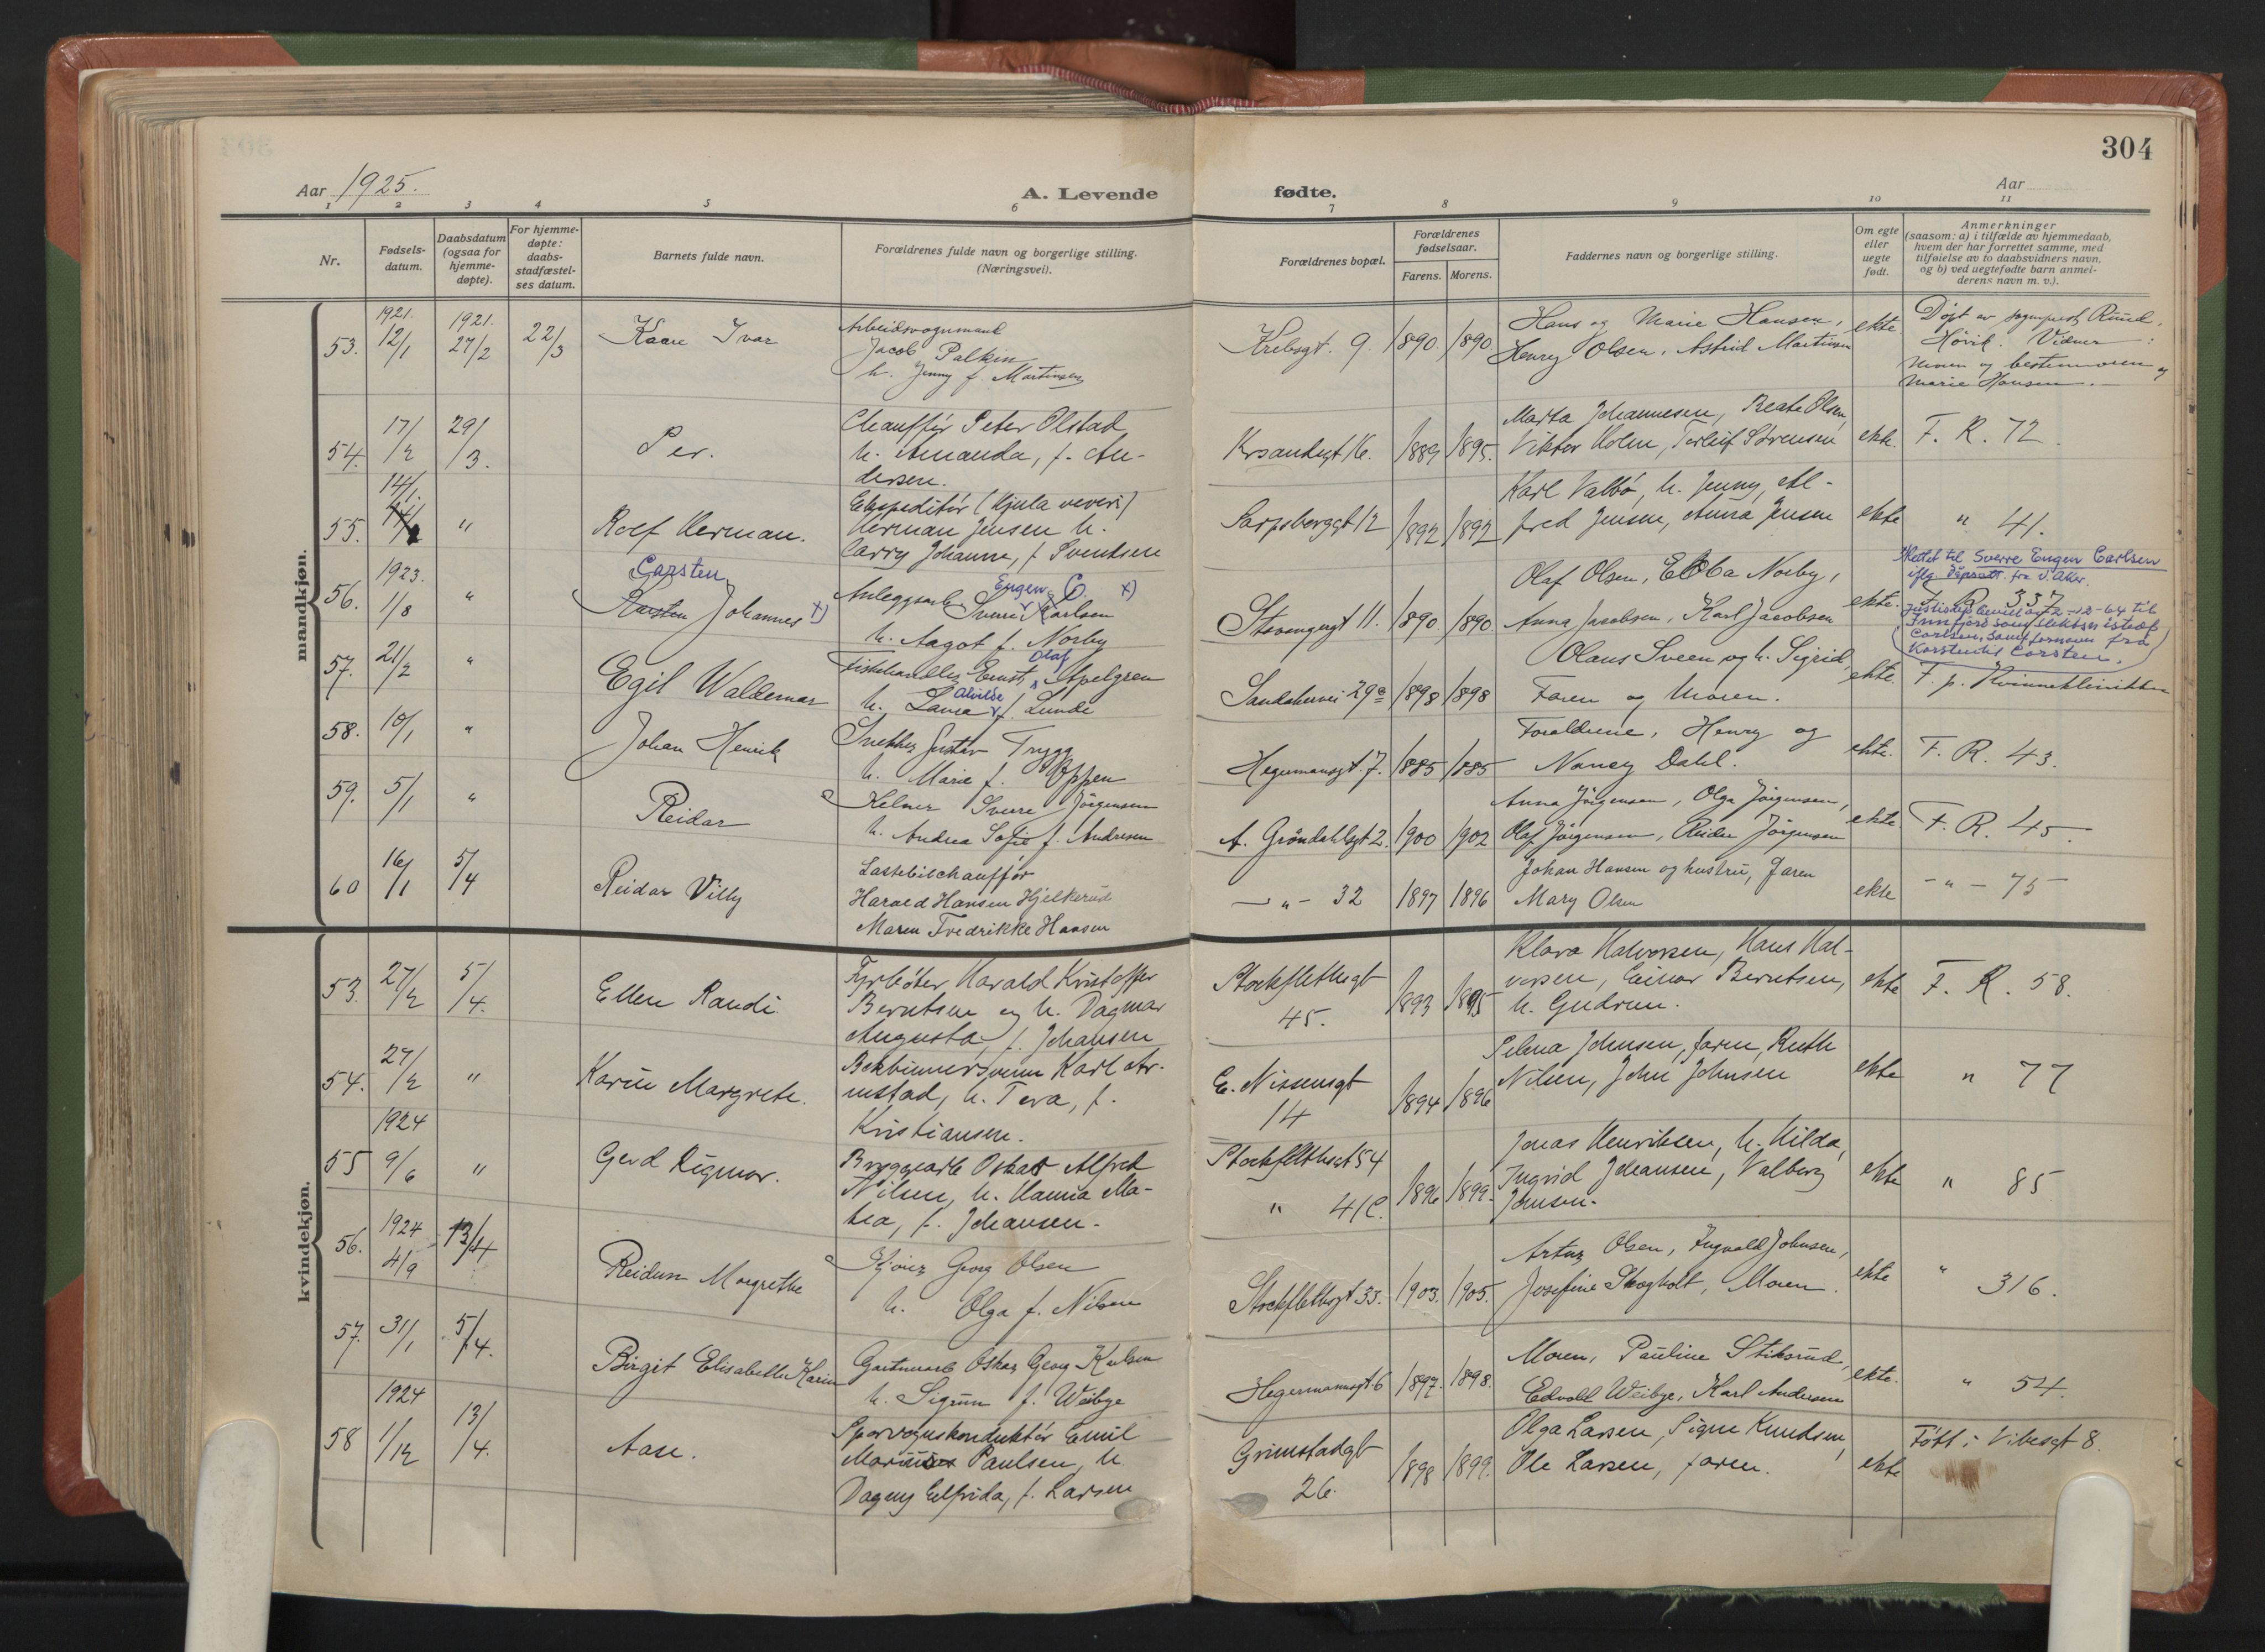 304
Aar 1925.
A. Levende
fødte.
Aar
1 2 3 4 5 6 7 8 9 10 11
Nr.
Fødsels-
datum.
Daabsdatum
(ogsaa for
hjemme-
døpte).
For hjemme-
døpte:
daabs-
stadfæstel-
ses datum.
Barnets fulde navn.
Forældrenes fulde navn og borgerlige stilling.
(Næringsvei).
Forældrenes bopæl.
Forældrenes
fødselsaar.
Farens. Morens.
Faddernes navn og borgerlige stilling.
Om egte
eller
uegte
født.
Anmerkninger
(saasom: a) i tilfælde av hjemmedaab,
hvem der har forrettet samme, med
tilføielse av to daabsvidners navn.
og b) ved uegtefødte barn anmel-
derens navn m. v.).
mandkjøn.
53. 1921. 12/1 1921. 27/2 22/3 Kaare Ivar
Arbeidsvognmand
Jacob Palkin
h. Jenny f. Martinsen
Krebsgt. 9. 1890. 1890.
Hans og Marie Hansen,
Henry Olsen, Astrid Martinsen
ekte
Døpt av sogneprest Ruud,
Høvik. Vidner:
Moren og bestemoren og
Marie Hansen.
54. 17/2 29/3. Per.
Chauffør Peter Olstad
h. Amanda, f. An-
dersen.
Krsandsgt 16. 1889 1895.
Marta Johannesen, Beate Olsen,
Viktor Holm, Torleif Sørensen
ekte. F. R. 72.
55. 14/1. " Rolf Herman.
Ekspeditør (Hjula veveri)
Herman Jensen h.
Carry Johanne, f. Svendsen
Sarpsborggt 12 1892 1892
Karl Valbø, h. Jenny, Al-
fred Jensen, Anna Jensen
ekte " 41.
56. 1923. 1/8 "
Carsten
Karsten Johannes x)
Eugen C. x)
Anleggsarb. Sverre Karlsen
h. Aagot f. Norby
Stavangergt 11. 1890 1890
Olaf Olsen, Ebba Norby,
Anna Jacobsen, Karl Jacobsen
ekte.
Rettet til Sverre Eugen Carlsen
iflg. dåpsatt. fra V. Aker.
F. R. 337
Justisdep bevill av 2-12-64 til
som slektsn istedf
Carlsen, samt fornavn fra
Karsten til Carsten.
57. 21/2 " Egil Waldemar
Olaf
Fiskehandler Ernst Apelgren
Alvilde
h. Laura f. Lunde
Sandakervei 29a 1898 1898
Olaus Sveen og h. Sigrid,
Faren og Moren.
ekte. F. p. Kvinneklinikken
58. 10/1 " Johan Henrik
Snekker Gustav Trygg
h. Marie f. Oppen
Hegermansgt. 7. 1885 1885
Foreldrene, Henry og
Nancy Dahl.
ekte. F. R. 43.
59. 5/1 " Reidar
Kelner Sverre Jörgensen
h. Andrea Sofie f. Andresen
A. Gröndahlsgt 2. 1900 1902
Anna Jörgensen, Olga Jörgensen,
Olaf Jörgensen, Reidar Jörgensen
ekte F. R. 45
60 16/1 5/4 Reidar Villy
Lastebilchauffør
Harald Hansen Hjelkerud
Maren Fredrikke Hansen
— " — 32 1897 1896
Johan Hansen og hustru, Faren
Mary Olsen
ekte — " — 75
kvindekjøn.
53. 27/2 5/4. Ellen Randi.
Fyrbøter Harald Kristoffer
Berntsen og h. Dagmar
Augusta, f. Johansen
Stockflethsgt
45. 1893 1895
Klara Halvorsen, Hans Hal-
vorsen, Einar Berntsen,
h. Gudrun.
ekte F. R. 58.
54. 27/2 " Karin Margrete.
Bokbindersvenn Karl Ar-
mstad, h. Teva, f.
Kristiansen.
E. Nissensgt
14 1894 1896
Selma Johnsen, faren, Ruth
Nilsen, John Johnsen
ekte " 77
55 1924 9/6 " Gerd Rigmor.
Bryggearb Oskar Alfred
Nilsen, h. Hanna Ma-
tea, f. Johansen.
Stockflethsgt 54
" 41c. 1896 1899.
Jonas Henriksen, h. Hilda,
Ingrid Johansen, Valborg
Jonsen.
ekte " 85
56. 1924 4/9 13/4 Reidun Margrethe
Georg Olsen
h. Olga f. Nilsen
Stockflethsgt 33. 1903. 1905.
Artur Olsen, Ingvald Johnsen,
Josefine Skogholt, Moren.
ekte " 316.
57. 31/1 5/4. Birgit Elisabeth Karin
Gartnerarb Oskar Georg Karlsen
h. Sigrun f. Weibye
Hegermannsgt. 6 1897. 1898.
Moren, Pauline Stiksrud,
Edvald Weibye, Karl Andersen
ekte. " 54.
58 1924 1/12 13/4. Aase.
Sporvognskonduktør Emil
Marinius Paulsen, h.
Dagny Elfrida, f. Larsen
Grimstadgt
26. 1898 1899.
Olga Larsen, Signe Knudsen,
Ole Larsen, faren.
ekte Født i Vibesgt 8.